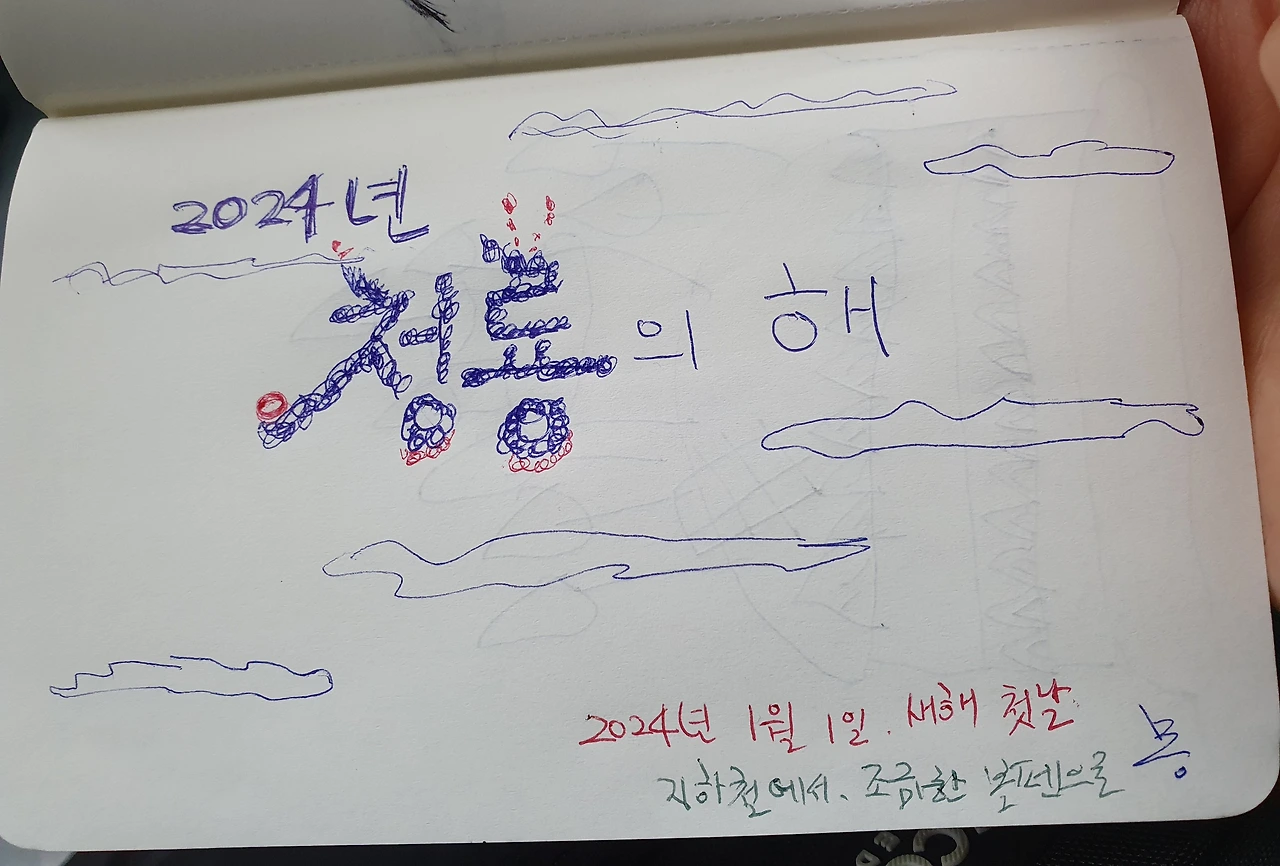 2024년
청룡의 해
2024년 1월 1일. 새해 첫날
지하철에서. 조금한 볼펜으로
봉